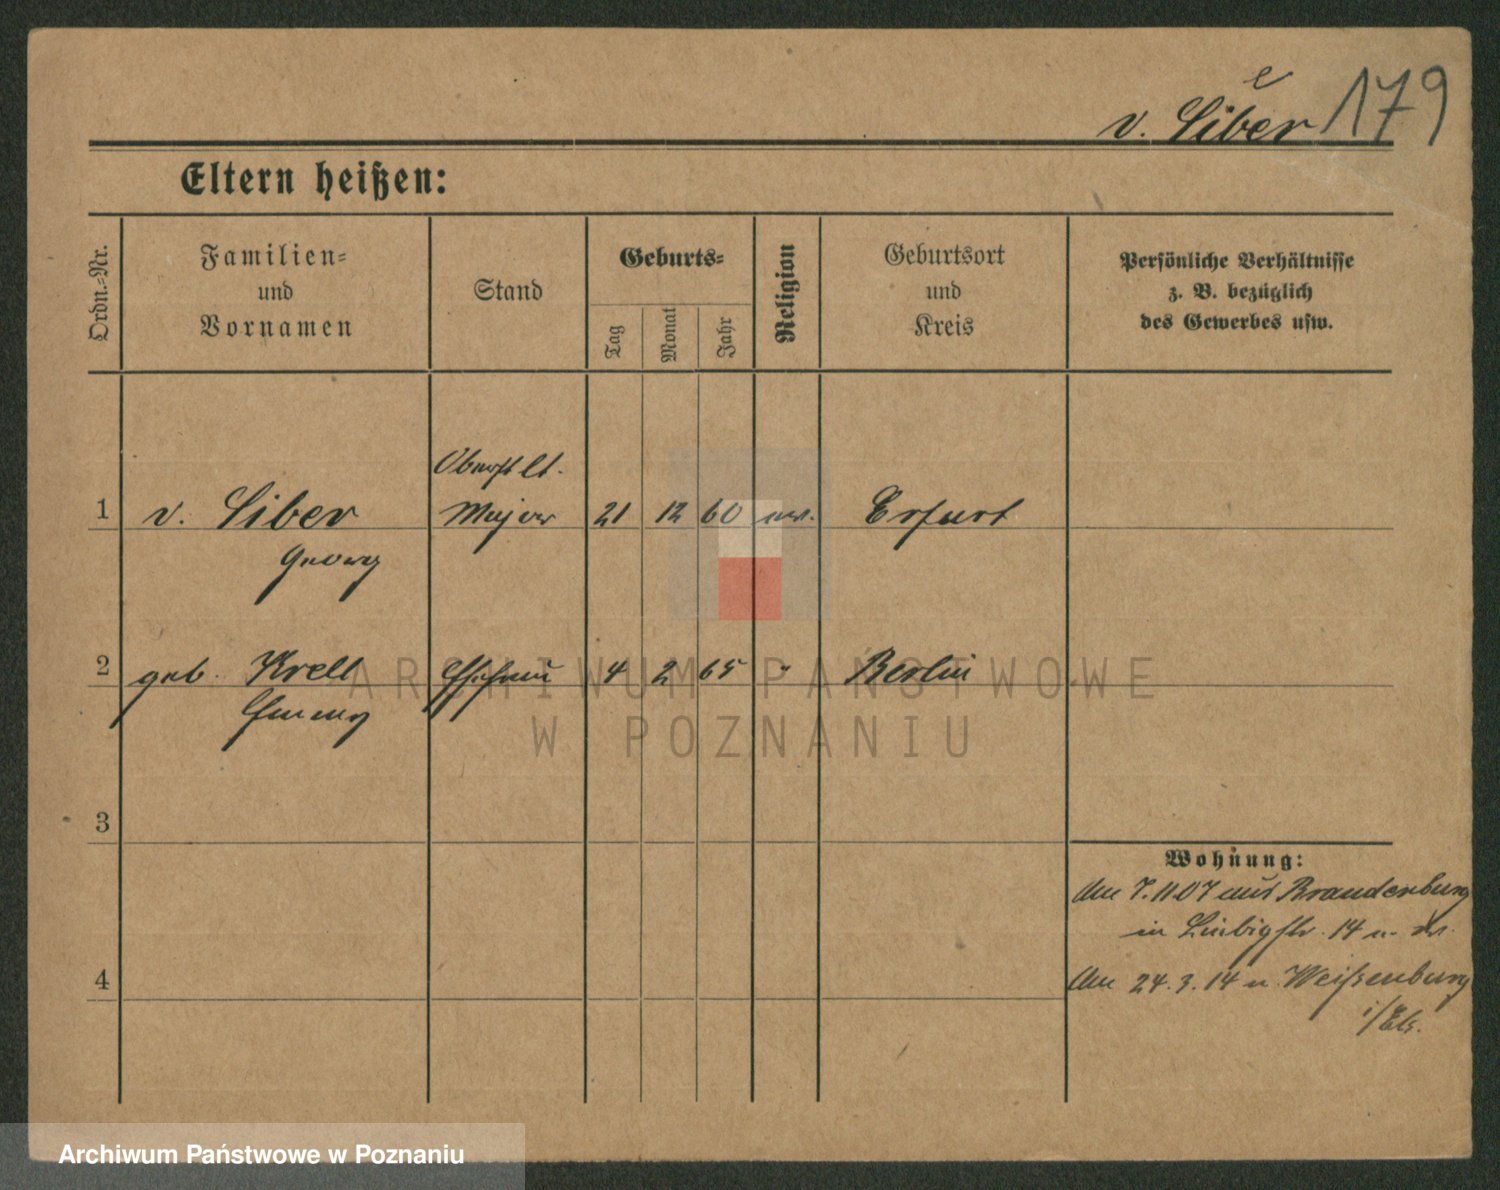 e
v. Siber 179
Eltern heißen:
Ordn.-Nr.
Familien-
und
Vornamen
Stand
Geburts-
Tag
Monat
Jahr
Religion
Geburtsort
und
Kreis
Persönliche Verhältnisse
z. B. bezüglich
des Gewerbes usw.
Oberstlt.
1 v. Siber Major 21 12 60 ev. Erfurt
Georg
2 geb. Krell Ehefrau 4 2 65 " Berlin
Emmy
3
4
Wohnung:
Am 7.11.07 aus Brandenburg
in Liebigstr. 14 u.
Am 24.3.14 n. Weißenburg
i/Els.
ARCHIWUM PAŃSTWOWE
W POZNANIU
Archiwum Państwowe w Poznaniu